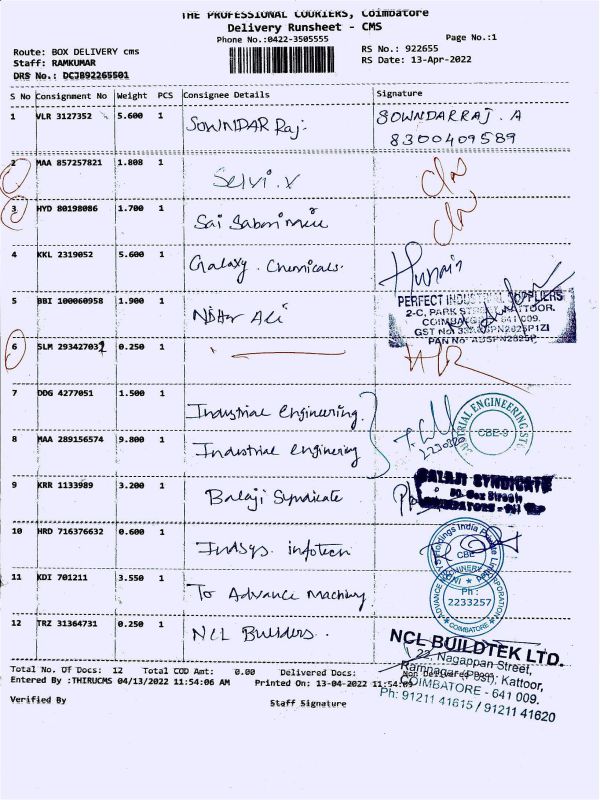 THE PROFESSIONAL COURIERS, Coimbatore
Delivery Runsheet - CMS
Phone No.:0422-3505555
Page No.:1
Route: BOX DELIVERY cms
RS No.: 922655
Staff: RAMKUMAR
RS Date: 13-Apr-2022
DRS No.: DCJB92265501
S No Consignment No Weight PCS Consignee Details Signature
1 VLR 3127352 5.600 1 SOWNDAR Raj. SOWNDARRAJ. A
8300409589
2 MAA 857257821 1.808 1 Selvi. v
3 HYD 80198086 1.700 1 Sai
4 KKL 2319052 5.600 1 Galaxy. Chemicals.
PERFECT INDUSTRIAL SUPPLIERS
2-C, PARK STREET, KATTOOR,
COIMBATORE - 641 009.
5 BBI 100060958 1.900 1 Ali
GST No:
PAN No:
6 SLM 293427032 0.250 1
7 DDG 4277051 1.500 1 Industrial Engineering.
INDUSTRIAL ENGINEERING
CBE-9
8 MAA 289156574 9.800 1 Industrial engineering
9 KRR 1133989 3.200 1 Balaji Syndicate
BALAJI SYNDICATE
10 HRD 716376632 0.600 1 Indsys. infotech
Holdings India Private
CBE
11 KDI 701211 3.550 1 To Advance machinery
ADVANCE MACHINERY CORPORATION
Ph :
2233257
COIMBATORE
12 TRZ 31364731 0.250 1 NCL Builders.
NCL BUILDTEK LTD.
22, Nagappan Street,
Ramnagar (Post), Kattoor,
COIMBATORE - 641 009.
Ph: 91211 41615 / 91211 41620
Total No. Of Docs: 12 Total COD Amt: 0.00 Delivered Docs: Non Delivered Docs:
Entered By :THIRUCMS 04/13/2022 11:54:06 AM Printed On: 13-04-2022 11:54:09
Verified By Staff Signature